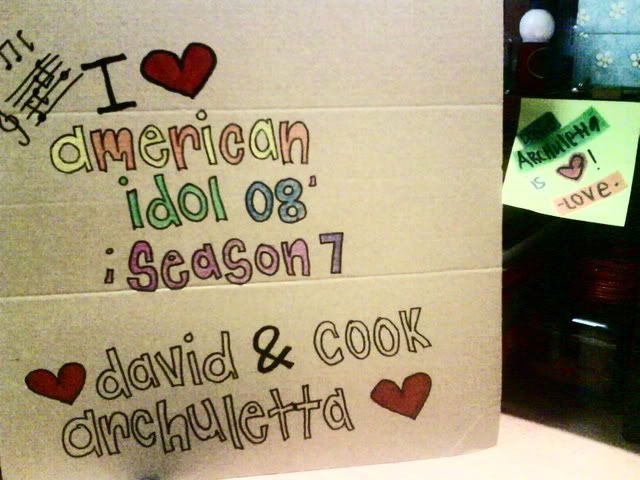 I
american
idol 08'
; season 7
david & cook
archuletta
ARCHULETTA
IS !
-LOVE.